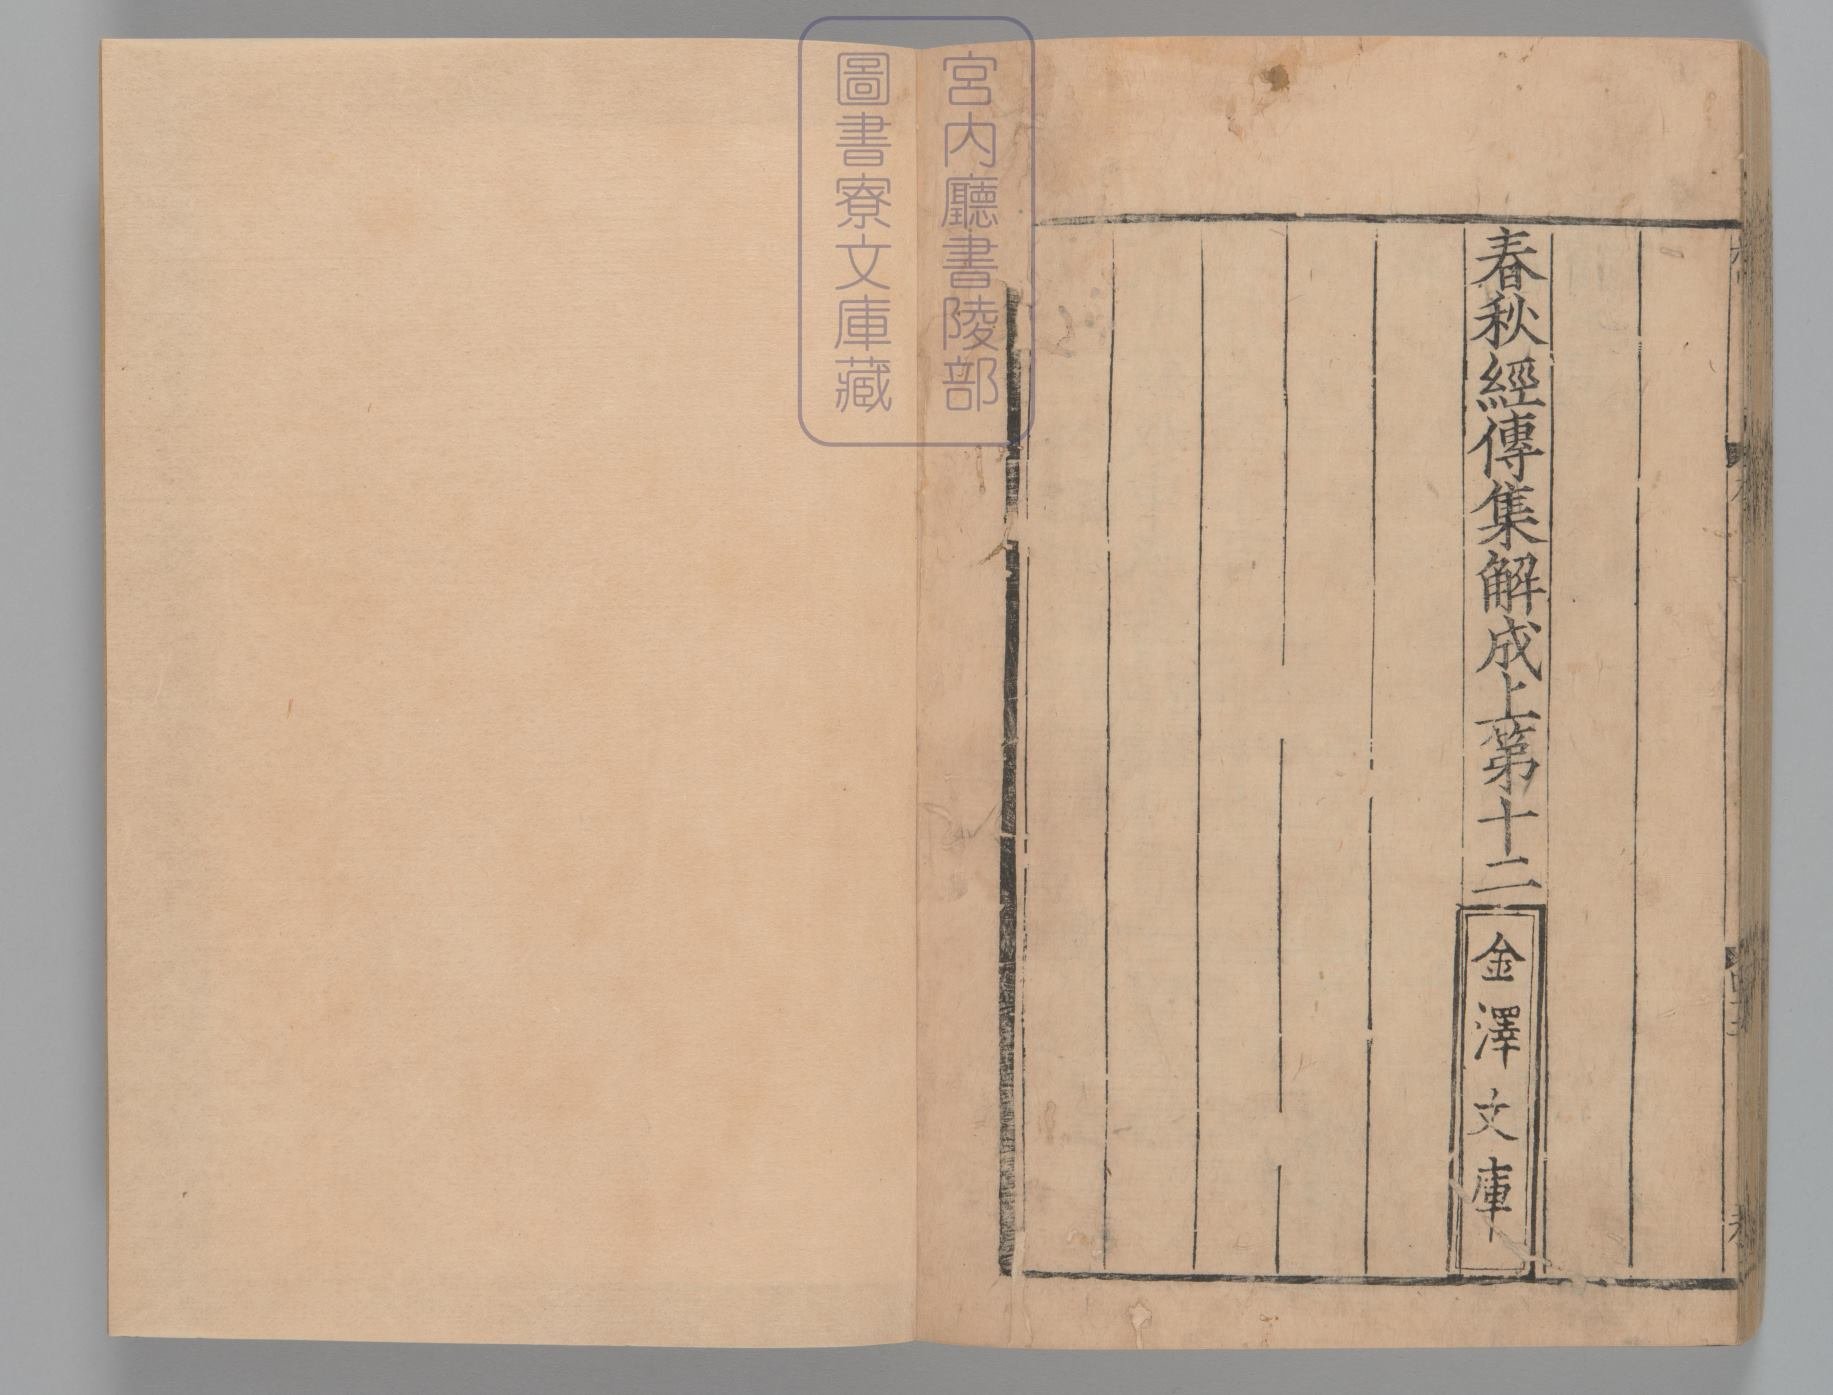 春秋經傳集解成上第十二
金澤文庫
宮内廳書陵部
圖書寮文庫藏